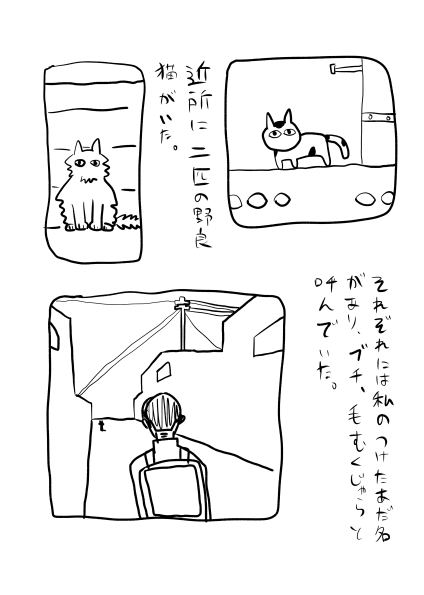 近所に二匹の野良
猫がいた。
それぞれには私のつけたあだ名
があり、ブチ、毛むくじゃらと
呼んでいた。